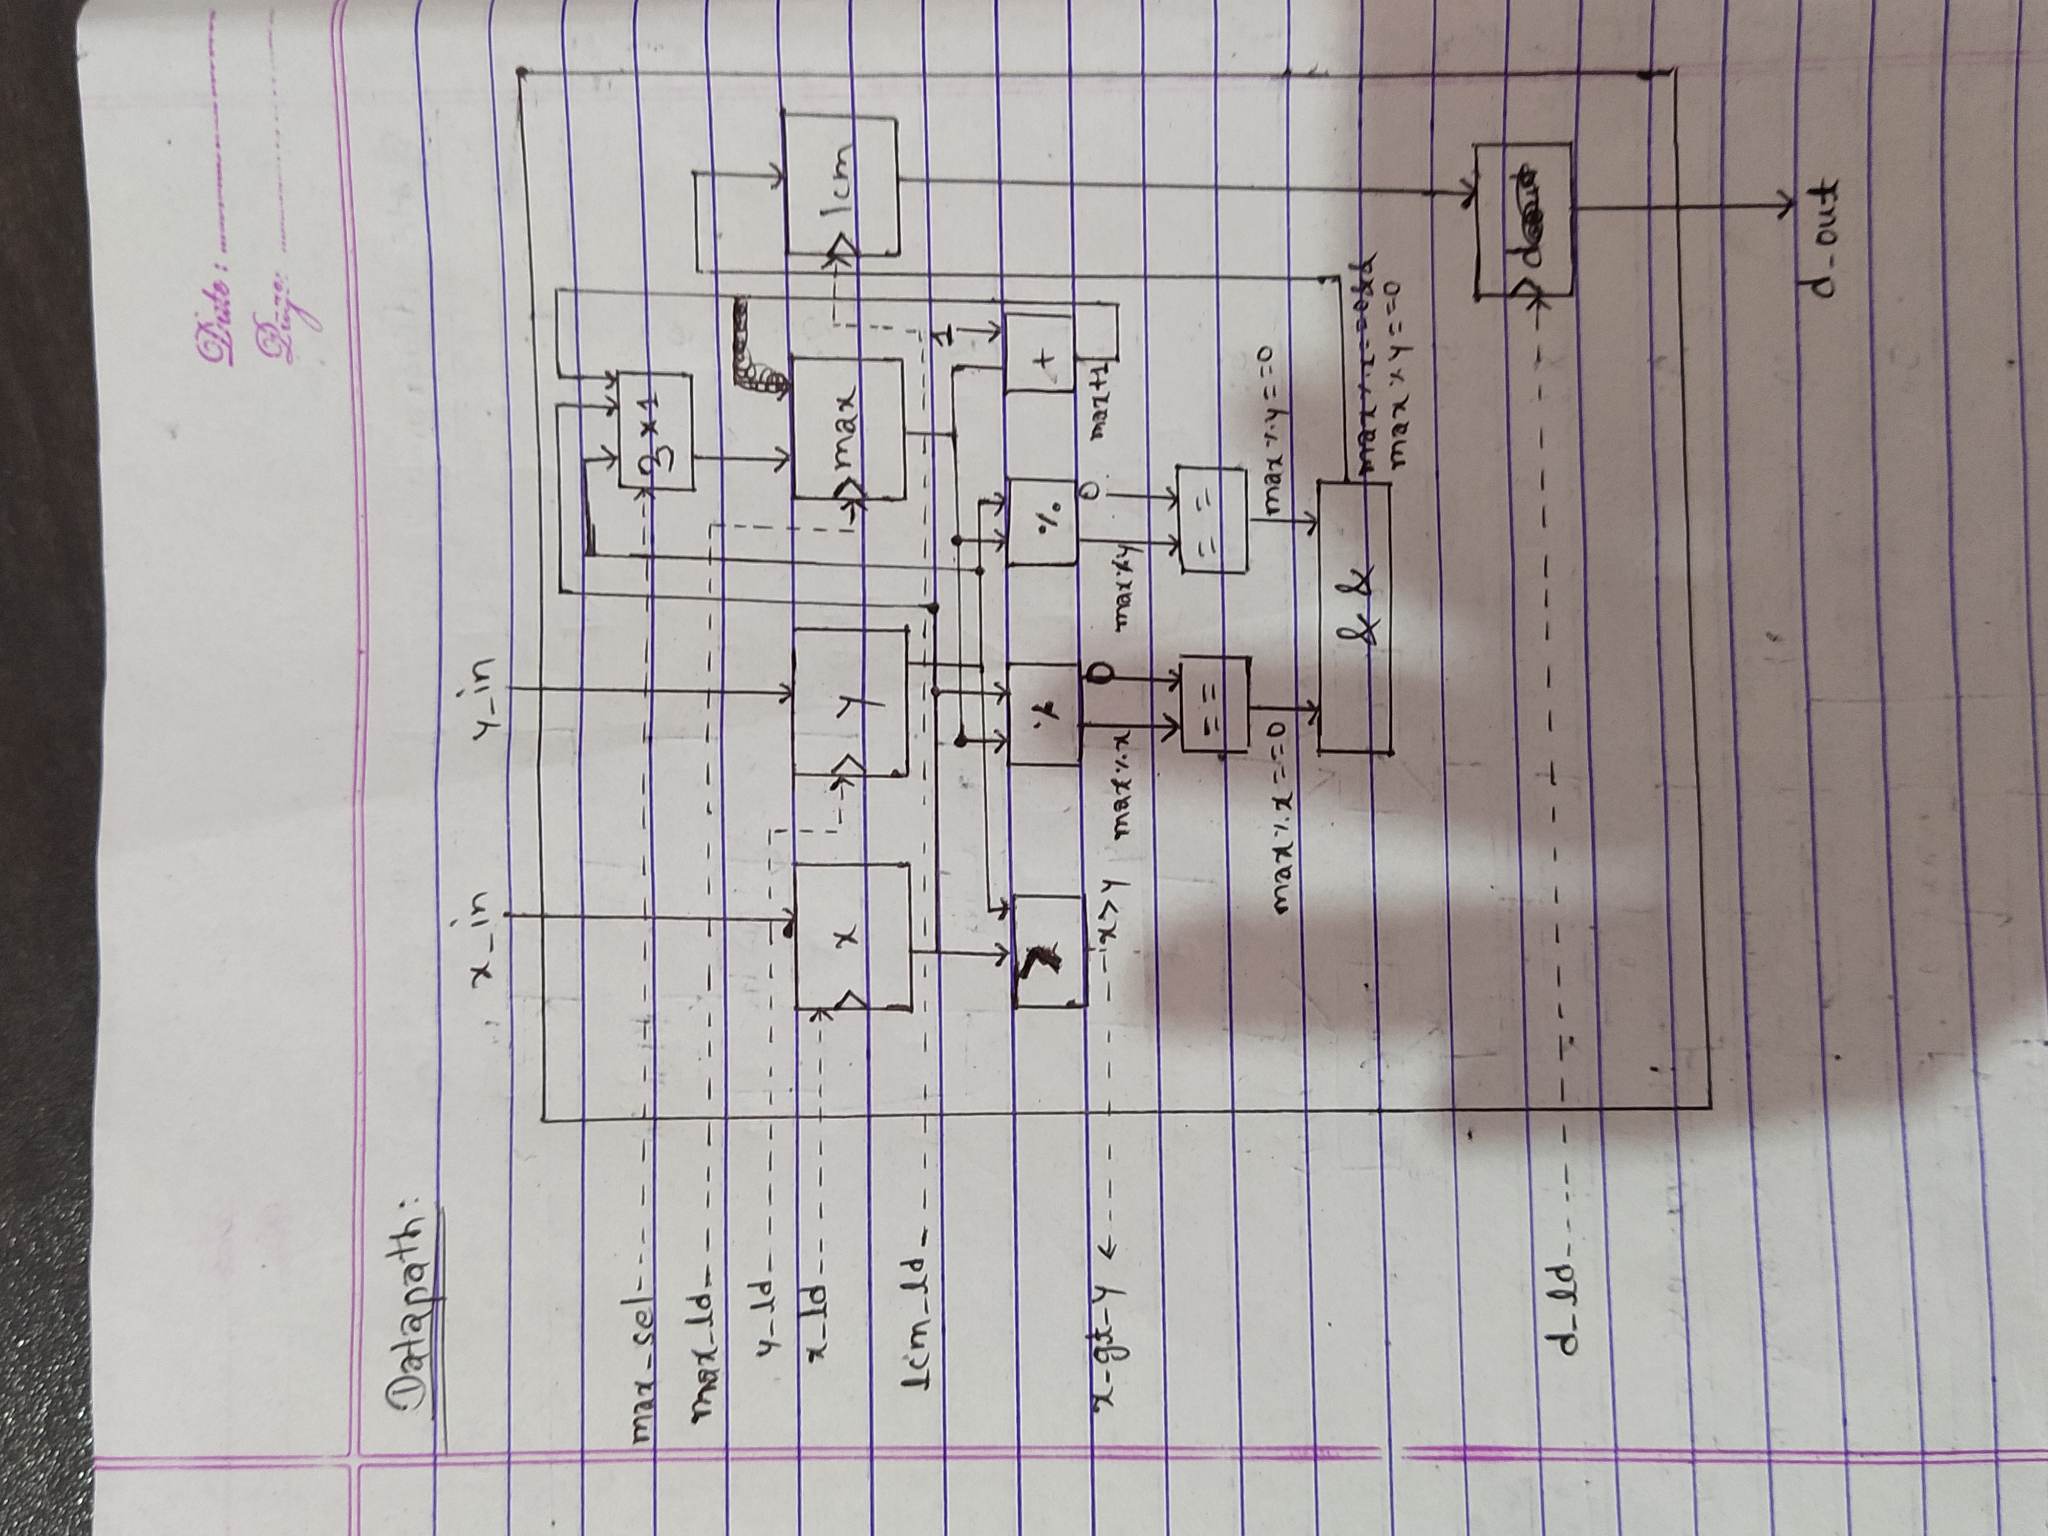 Date:
Page:
Datapath:
x_in y_in
max_sel
3x1
max_ld
y_ld
x_ld
x y max lcm
lcm_ld
1
> % % +
x_gt_y x>y max%x 0 max%y 0 max+1
== ==
max%x==0 max%y==0
&&
max%x==0&&
max%y==0
d_ld
d_out